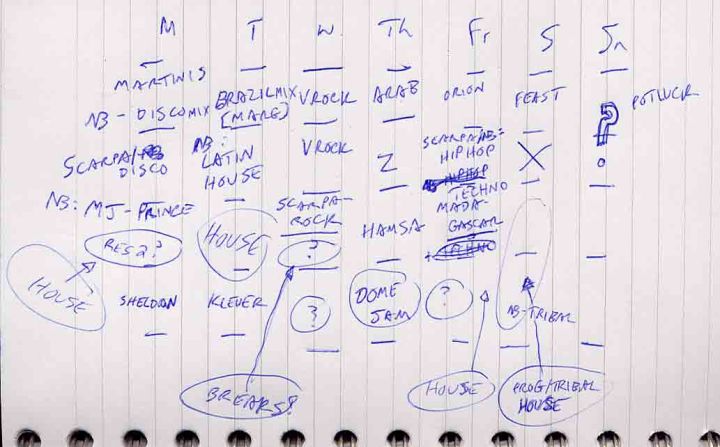 M T W. Th Fr S Sn
MARTINIS BRAZILMIX VROCK ARAB ORION FEAST POTLUCK
NB - DISCOMIX [MARG] ?
SCARPA/NB NB: VROCK Z SCARPA/NB= X
DISCO LATIN HIPHOP
HOUSE NB HIPHOP
TECHNO
NB: MJ-PRINCE SCARPA- MADA-
ROCK HAMSA GASCAR
RES2? HOUSE ? + TECHNO
HOUSE
SHELDON KLEVER ? DOME ? NB-TRIBAL
JAM
BREAKS? HOUSE PROG/TRIBAL
HOUSE